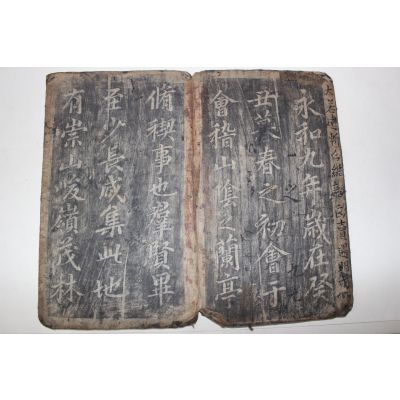 永和九年歲在癸
丑莫春之初會于
會稽山陰之蘭亭
脩禊事也羣賢畢
至少長咸集此地
有崇山峻領茂林